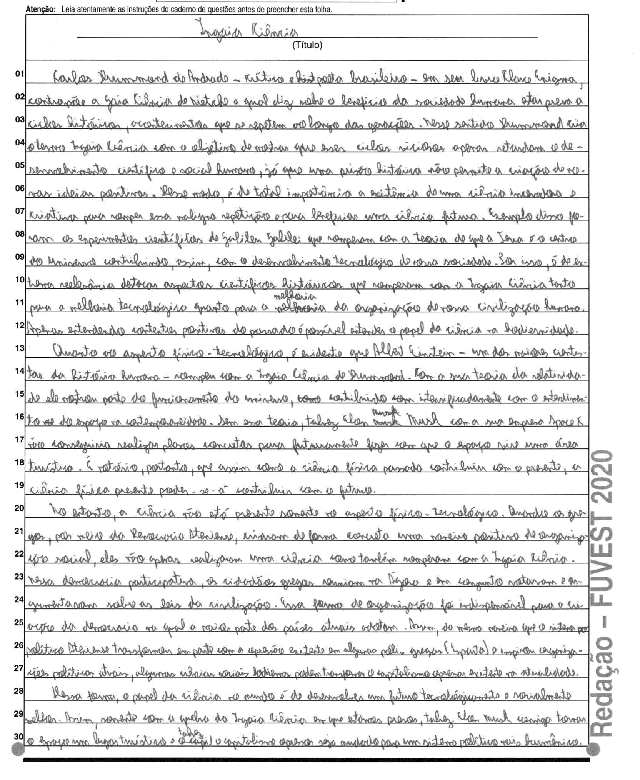 Atenção: Leia atentamente as instruções do caderno de questões antes de preencher esta folha.
Ingaia Ciência
(Título)
01 Carlos Drummond de Andrade – crítico e poeta brasileiro – em seu livro Claro Enigma,
02 contrapõe a Gaia Ciência de Nietzche o qual diz sobre o benefício da sociedade humana estar presa a
03 ciclos históricos, acontecimentos que se repetem ao longo das gerações. Nesse sentido Drummond cria
04 o termo Ingaia Ciência com o objetivo de mostrar que esses ciclos viciosos apenas retardam o de-
05 senvolvimento científico e social humano, já que uma prisão histórica não permite a criação de no-
06 vas ideias positivas. Desse modo, é de total importância a existência de uma ciência inovadora e
07 criativa para romper essa maligna repetição e para beneficiar uma ciência futura. Exemplo disso fo-
08 ram os experimentos científicos de Galileu Galilei que romperam com a teoria de que a Terra é o centro
09 do Universo contribuindo, assim, com o desenvolvimento tecnológico de nossa sociedade. Por isso, é de ex-
10 trema relevância destacar aspectos científicos históricos que romperam com a Ingaia Ciência tanto
11 para a melhoria tecnológica quanto para a melhoria da organização de nossa civilização humana.
12 Apenas entendendo contextos positivos do passado é possível entender o papel da ciência na hodiernidade.
13 Quanto ao aspecto físico-tecnológico, é evidente que Albert Einstein – um dos maiores cientis-
14 tas da história humana – rompeu com a Ingaia Ciência de Drummond. Com a sua teoria da relativida-
15 de ele mostrou parte do funcionamento do universo, como contribuindo com o entendimen-
16 to do espaço na contemporaneidade. Sem essa teoria, talvez Elon Musk com a sua empresa Space X
17 não conseguiria realizar planos concretos para futuramente fazer com que o espaço vire uma área
18 turística. É notório, portanto, que assim como a ciência física passada contribuiu com o presente, a
19 ciência física presente poder-se-á contribuir com o futuro.
20 No entanto, a ciência não está presente somente no aspecto físico-tecnológico. Quando os gre-
21 gos, por meio da Democracia Ateniense, criaram de forma concreta uma maneira positiva de organiza-
22 ção social, eles não apenas realizaram uma ciência como também romperam com a Ingaia Ciência.
23 Nessa democracia participativa, os cidadãos gregos reuniam na Ágora e em conjunto votavam e ar-
24 gumentavam sobre as leis da civilização. Essa forma de organização foi indispensável para a cri-
25 ação da democracia na qual a maior parte dos países atuais adotam. Assim, da mesma maneira que o sistema
26 político Ateniense transformou em parte com a opressão existente em algumas pólis gregas (Esparta) e inspirou organiza-
27 ções políticas atuais, algumas ciências sociais hodiernas podem transformar o capitalismo opressor existente na atualidade.
28 Dessa forma, o papel da ciência no mundo é de desenvolver um futuro tecnologicamente e socialmente
29 melhor. Assim, somente com a quebra da Ingaia Ciência em que estamos presos, talvez Elon Musk consiga tornar
30 o espaço um lugar turístico e talvez o capitalismo opressor seja mudado para um sistema político mais humânico.
Redação – FUVEST 2020